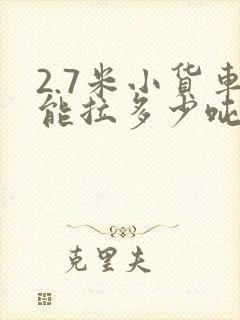 2.7米小货車
能拉多少吨
克里夫